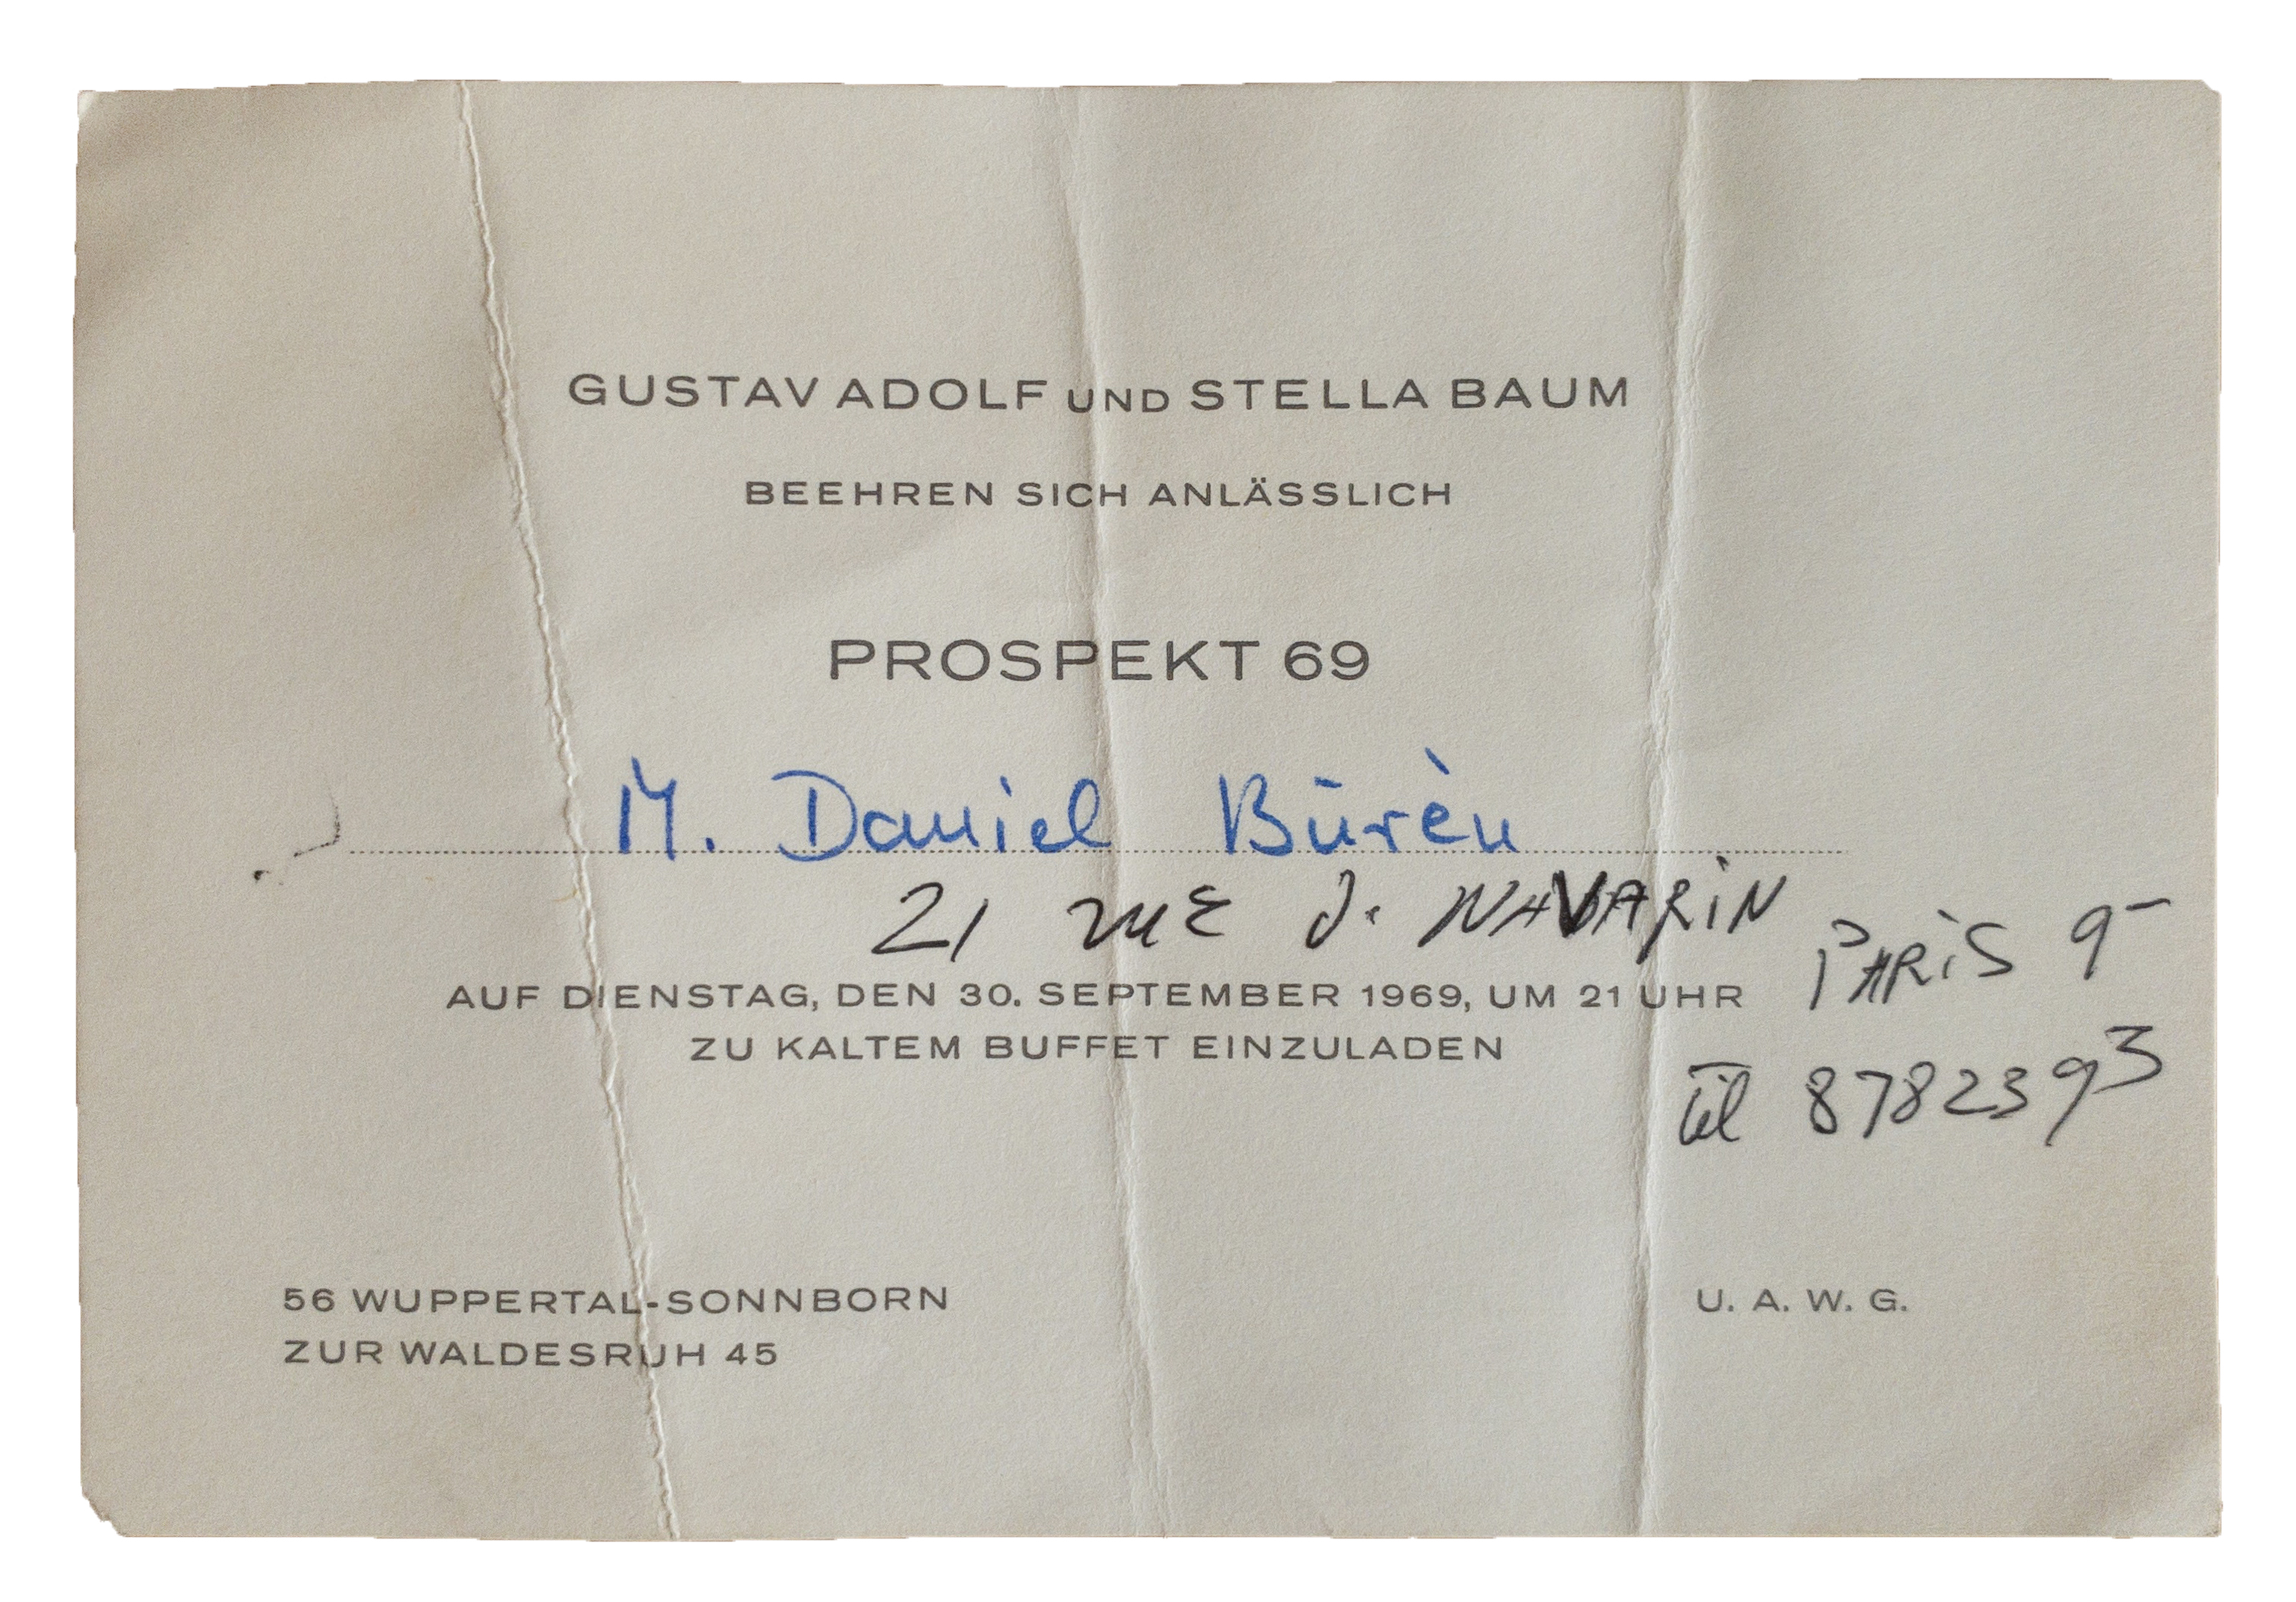 GUSTAV ADOLF UND STELLA BAUM
BEEHREN SICH ANLÄSSLICH
PROSPEKT 69
M. Daniel Bürèn
21 rue d. NAVARIN
PARIS 9-
AUF DIENSTAG, DEN 30. SEPTEMBER 1969, UM 21 UHR
ZU KALTEM BUFFET EINZULADEN
tel 8782393
56 WUPPERTAL-SONNBORN
ZUR WALDESRUH 45
U. A. W. G.